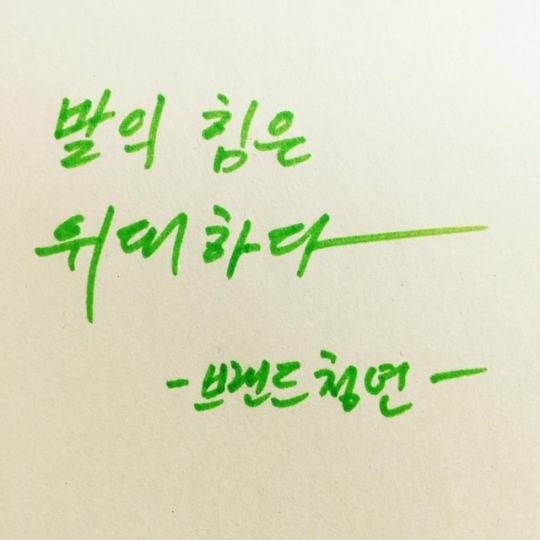 말의 힘은
위대하다
- 브랜드 청연 -